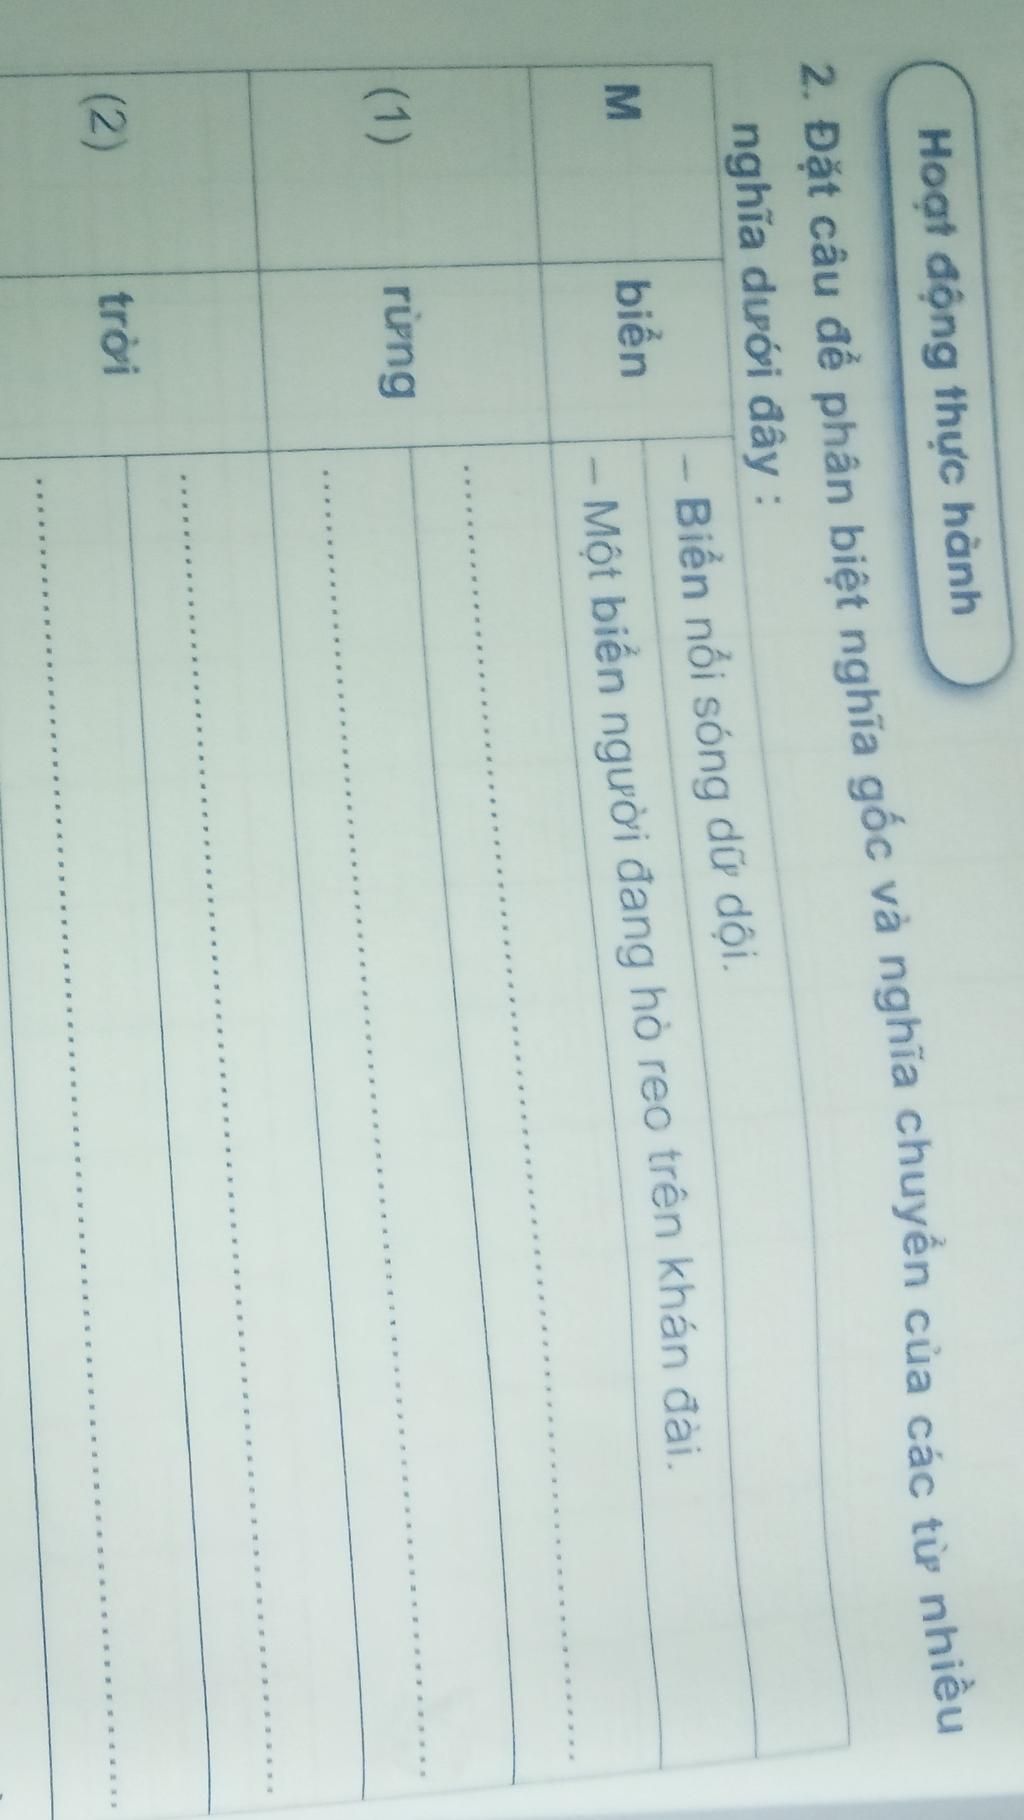 Hoạt động thực hành
2. Đặt câu để phân biệt nghĩa gốc và nghĩa chuyển của các từ nhiều
nghĩa dưới đây :
M
biển
– Biển nổi sóng dữ dội.
– Một biển người đang hò reo trên khán đài.
(1)
rừng
(2)
trời